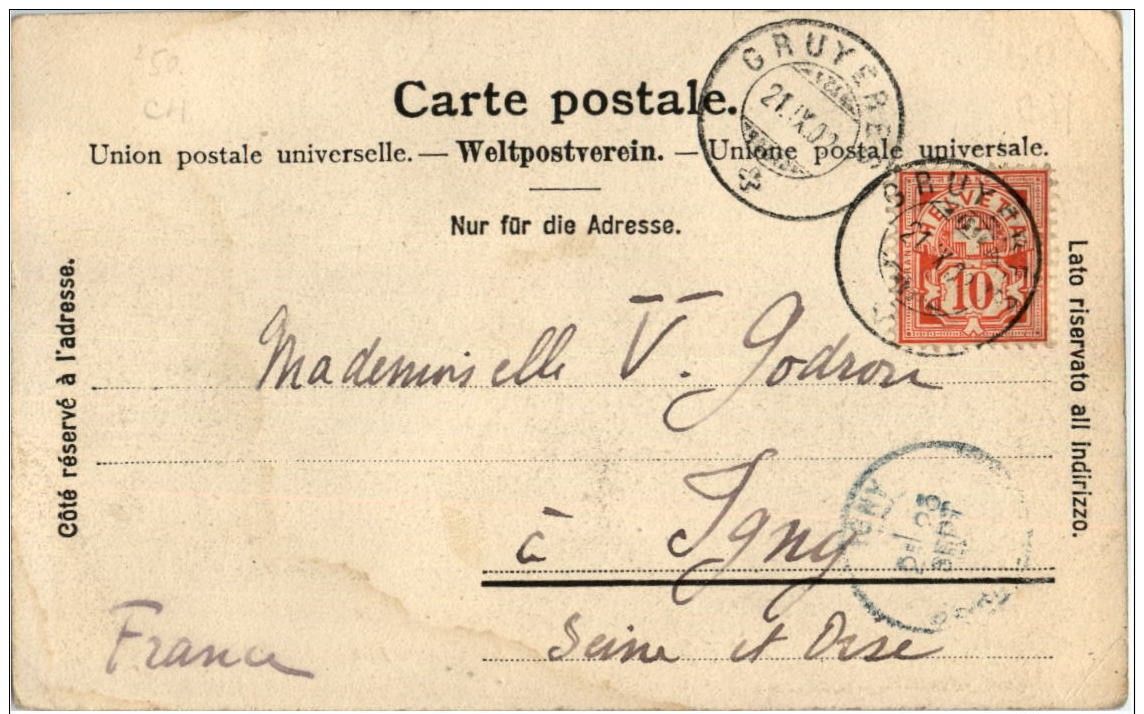 50.
CH
Carte postale.
Union postale universelle. — Weltpostverein. — Unione postale universale.
Nur für die Adresse.
Côté réservé à l'adresse.
Lato riservato all indirizzo.
GRUYERES
21.IX.02
GRUYERES
HELVETIA
10
Mademoiselle V. Godron
à Igny
Seine et Oise
France
IGNY
23
SEPT